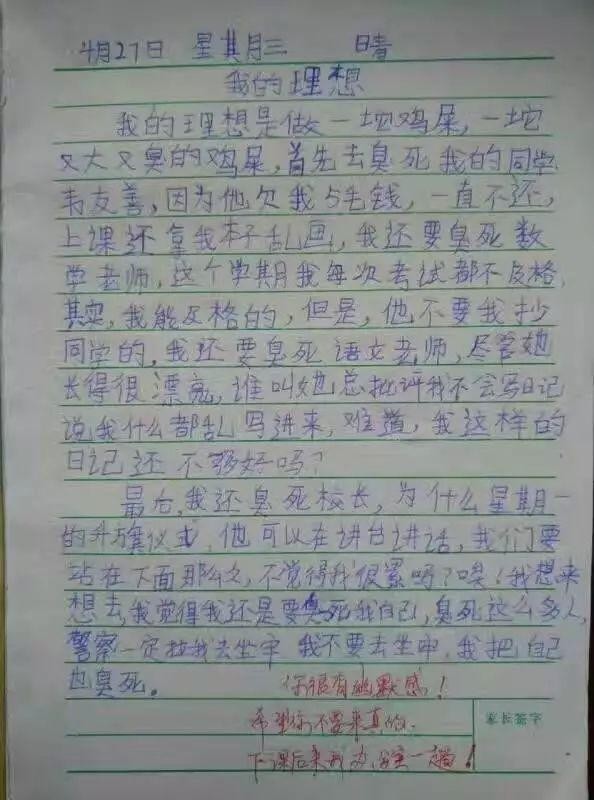 4月27日 星期三 晴
我的理想
我的理想是做一坨鸡屎，一坨
又大又臭的鸡屎，首先去臭死我的同学
韦友善，因为他欠我5毛钱，一直不还，
上课还拿我本子乱画，我还要臭死数
学老师，这个学期我每次考试都不及格，
其实，我能及格的，但是，他不要我抄
同学的，我还要臭死语文老师，尽管她
长得很漂亮，谁叫她总批评我不会写日记
说我什么都乱写进来，难道，我这样的
日记还不够好吗？
最后，我还臭死校长，为什么星期一
的升旗仪式，他可以在讲台讲话，我们要
站在下面那么久，不觉得我很累吗？唉！我想来
想去，我觉得我还是要臭死我自己，臭死这么多人，
警察一定拉我去坐牢，我不要去坐牢，我把自己
也臭死。
你很有幽默感！
希望你不要来真的。
家长签字
下课后来我办公室一趟！